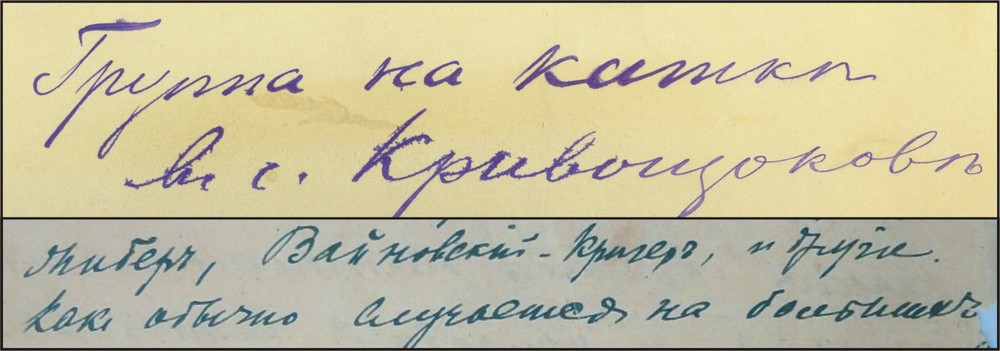 Группа на каткѣ
въ с. Кривощоковѣ
Войновскій-Кригеръ, и другіе.
Какъ обычно случается на большихъ